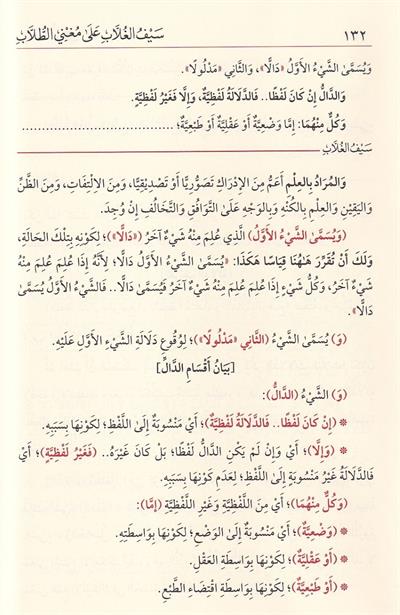 ١٣٢ سَيْفُ الغُلَّابِ عَلَى مُغْنِي الطُّلَّابِ
وَيُسَمَّى الشَّيْءُ الأَوَّلُ «دَالًّا»، وَالثَّانِي «مَدْلُولًا».
وَالدَّالُّ إِنْ كَانَ لَفْظًا.. فَالدَّلَالَةُ لَفْظِيَّةٌ، وَإِلَّا فَغَيْرُ لَفْظِيَّةٍ.
وَكُلٌّ مِنْهُمَا: إِمَّا وَضْعِيَّةٌ أَوْ عَقْلِيَّةٌ أَوْ طَبْعِيَّةٌ؛ ..............................
سَيْفُ الغُلَّابِ
وَالمُرَادُ بِالعِلْمِ أَعَمُّ مِنَ الإِدْرَاكِ تَصَوُّرِيًّا أَوْ تَصْدِيقِيًّا، وَمِنَ الِالْتِفَاتِ، وَمِنَ الظَّنِّ
وَاليَقِينِ وَالعِلْمِ بِالكُنْهِ وَبِالوَجْهِ عَلَى التَّوَافُقِ وَالتَّخَالُفِ إِنْ وُجِدَ.
(وَيُسَمَّى الشَّيْءُ الأَوَّلُ) الَّذِي عُلِمَ مِنْهُ شَيْءٌ آخَرُ («دَالًّا»)؛ لِكَوْنِهِ بِتِلْكَ الحَالَةِ،
وَلَكَ أَنْ تُقَرِّرَ هَاهُنَا قِيَاسًا هَكَذَا: «يُسَمَّى الشَّيْءُ الأَوَّلُ دَالًّا؛ لِأَنَّهُ إِذَا عُلِمَ عُلِمَ مِنْهُ
شَيْءٌ آخَرُ، وَكُلُّ شَيْءٍ إِذَا عُلِمَ عُلِمَ مِنْهُ شَيْءٌ آخَرُ فَيُسَمَّى دَالًّا.. فَالشَّيْءُ الأَوَّلُ يُسَمَّى
دَالًّا».
(وَ) يُسَمَّى الشَّيْءُ (الثَّانِي «مَدْلُولًا»)؛ لِوُقُوعِ دَلَالَةِ الشَّيْءِ الأَوَّلِ عَلَيْهِ.
[بَيَانُ أَقْسَامِ الدَّالِّ]
(وَ) الشَّيْءُ (الدَّالُّ):
* (إِنْ كَانَ لَفْظًا.. فَالدَّلَالَةُ لَفْظِيَّةٌ)؛ أَيْ مَنْسُوبَةٌ إِلَى اللَّفْظِ؛ لِكَوْنِهَا بِسَبَبِهِ.
* (وَإِلَّا)؛ أَيْ وَإِنْ لَمْ يَكُنِ الدَّالُّ لَفْظًا؛ بَلْ كَانَ غَيْرَهُ.. (فَغَيْرُ لَفْظِيَّةٍ)؛ أَيْ
فَالدَّلَالَةُ غَيْرُ مَنْسُوبَةٍ إِلَى اللَّفْظِ؛ لِعَدَمِ كَوْنِهَا بِسَبَبِهِ.
(وَكُلٌّ مِنْهُمَا)؛ أَيْ مِنَ اللَّفْظِيَّةِ وَغَيْرِ اللَّفْظِيَّةِ (إِمَّا):
* (وَضْعِيَّةٌ)؛ أَيْ مَنْسُوبَةٌ إِلَى الوَضْعِ؛ لِكَوْنِهَا بِوَاسِطَتِهِ.
* (أَوْ عَقْلِيَّةٌ)؛ لِكَوْنِهَا بِوَاسِطَةِ العَقْلِ.
* (أَوْ طَبْعِيَّةٌ)؛ لِكَوْنِهَا بِوَاسِطَةِ اقْتِضَاءِ الطَّبْعِ.